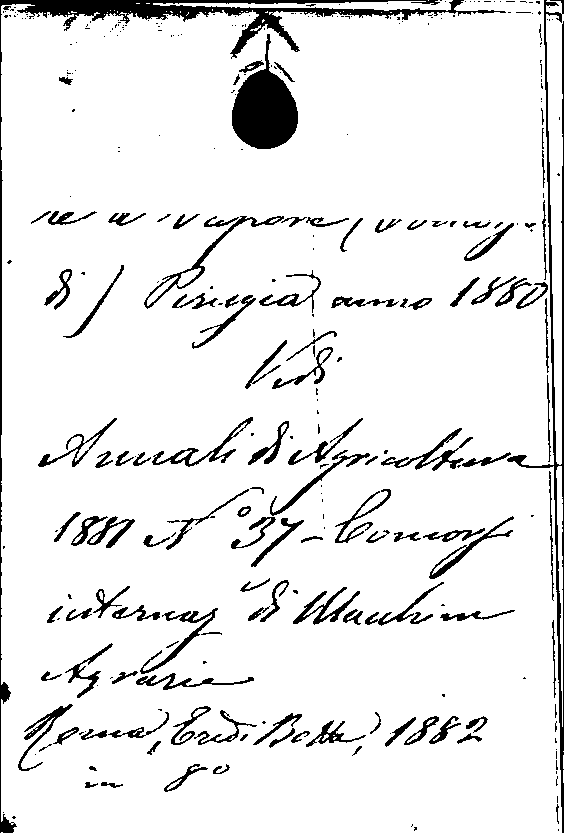 re a vapore (Concorso
di) Perugia anno 1880
Vedi
Annali di Agricoltura
1881 N° 37 - Concorsi
internaz di Macchine
Agrarie
Roma, Eredi Botta, 1882
in 8°